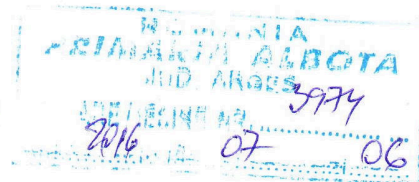 ROMANIA
PRIMARIA ALBOTA
JUD ARGES
3974
2016 07 06